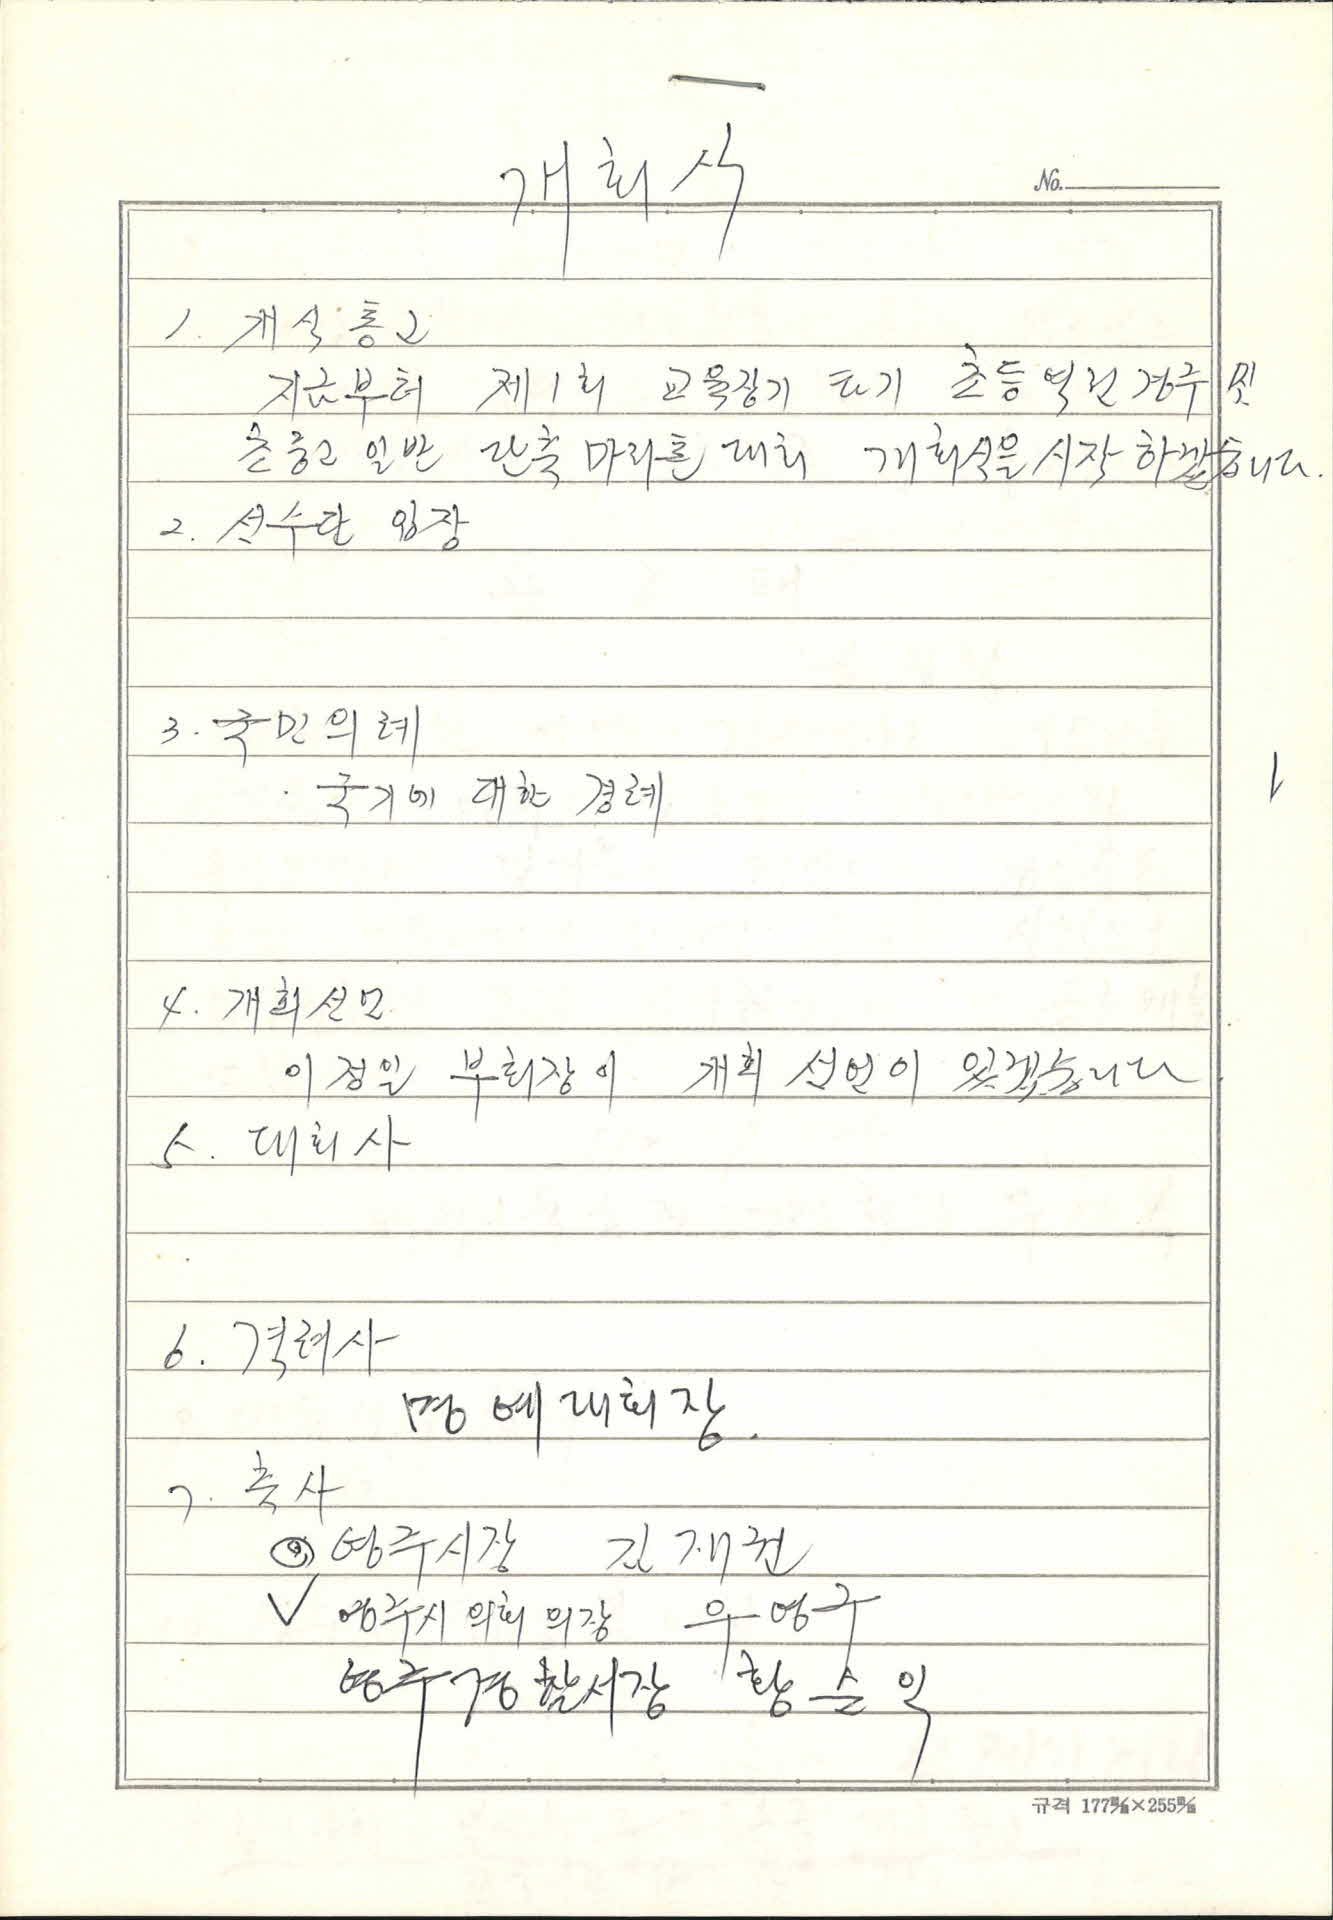 개회식
No.
1. 개식통고
지금부터 제1회 교육장기 타기 초등 역전경주 및
초중고 일반 단축 마라톤 대회 개회식을 시작 하겠습니다.
2. 선수단 입장
3. 국민의례
· 국기에 대한 경례
4. 개회선언
이정일 부회장이 개회 선언이 있겠습니다
5. 대회사
6. 격려사
명예대회장.
7. 축사
영주시장 김재권
✓ 영주시 의회 의장 우영구
영주경찰서장 황순익
규격 177㎜×255㎜